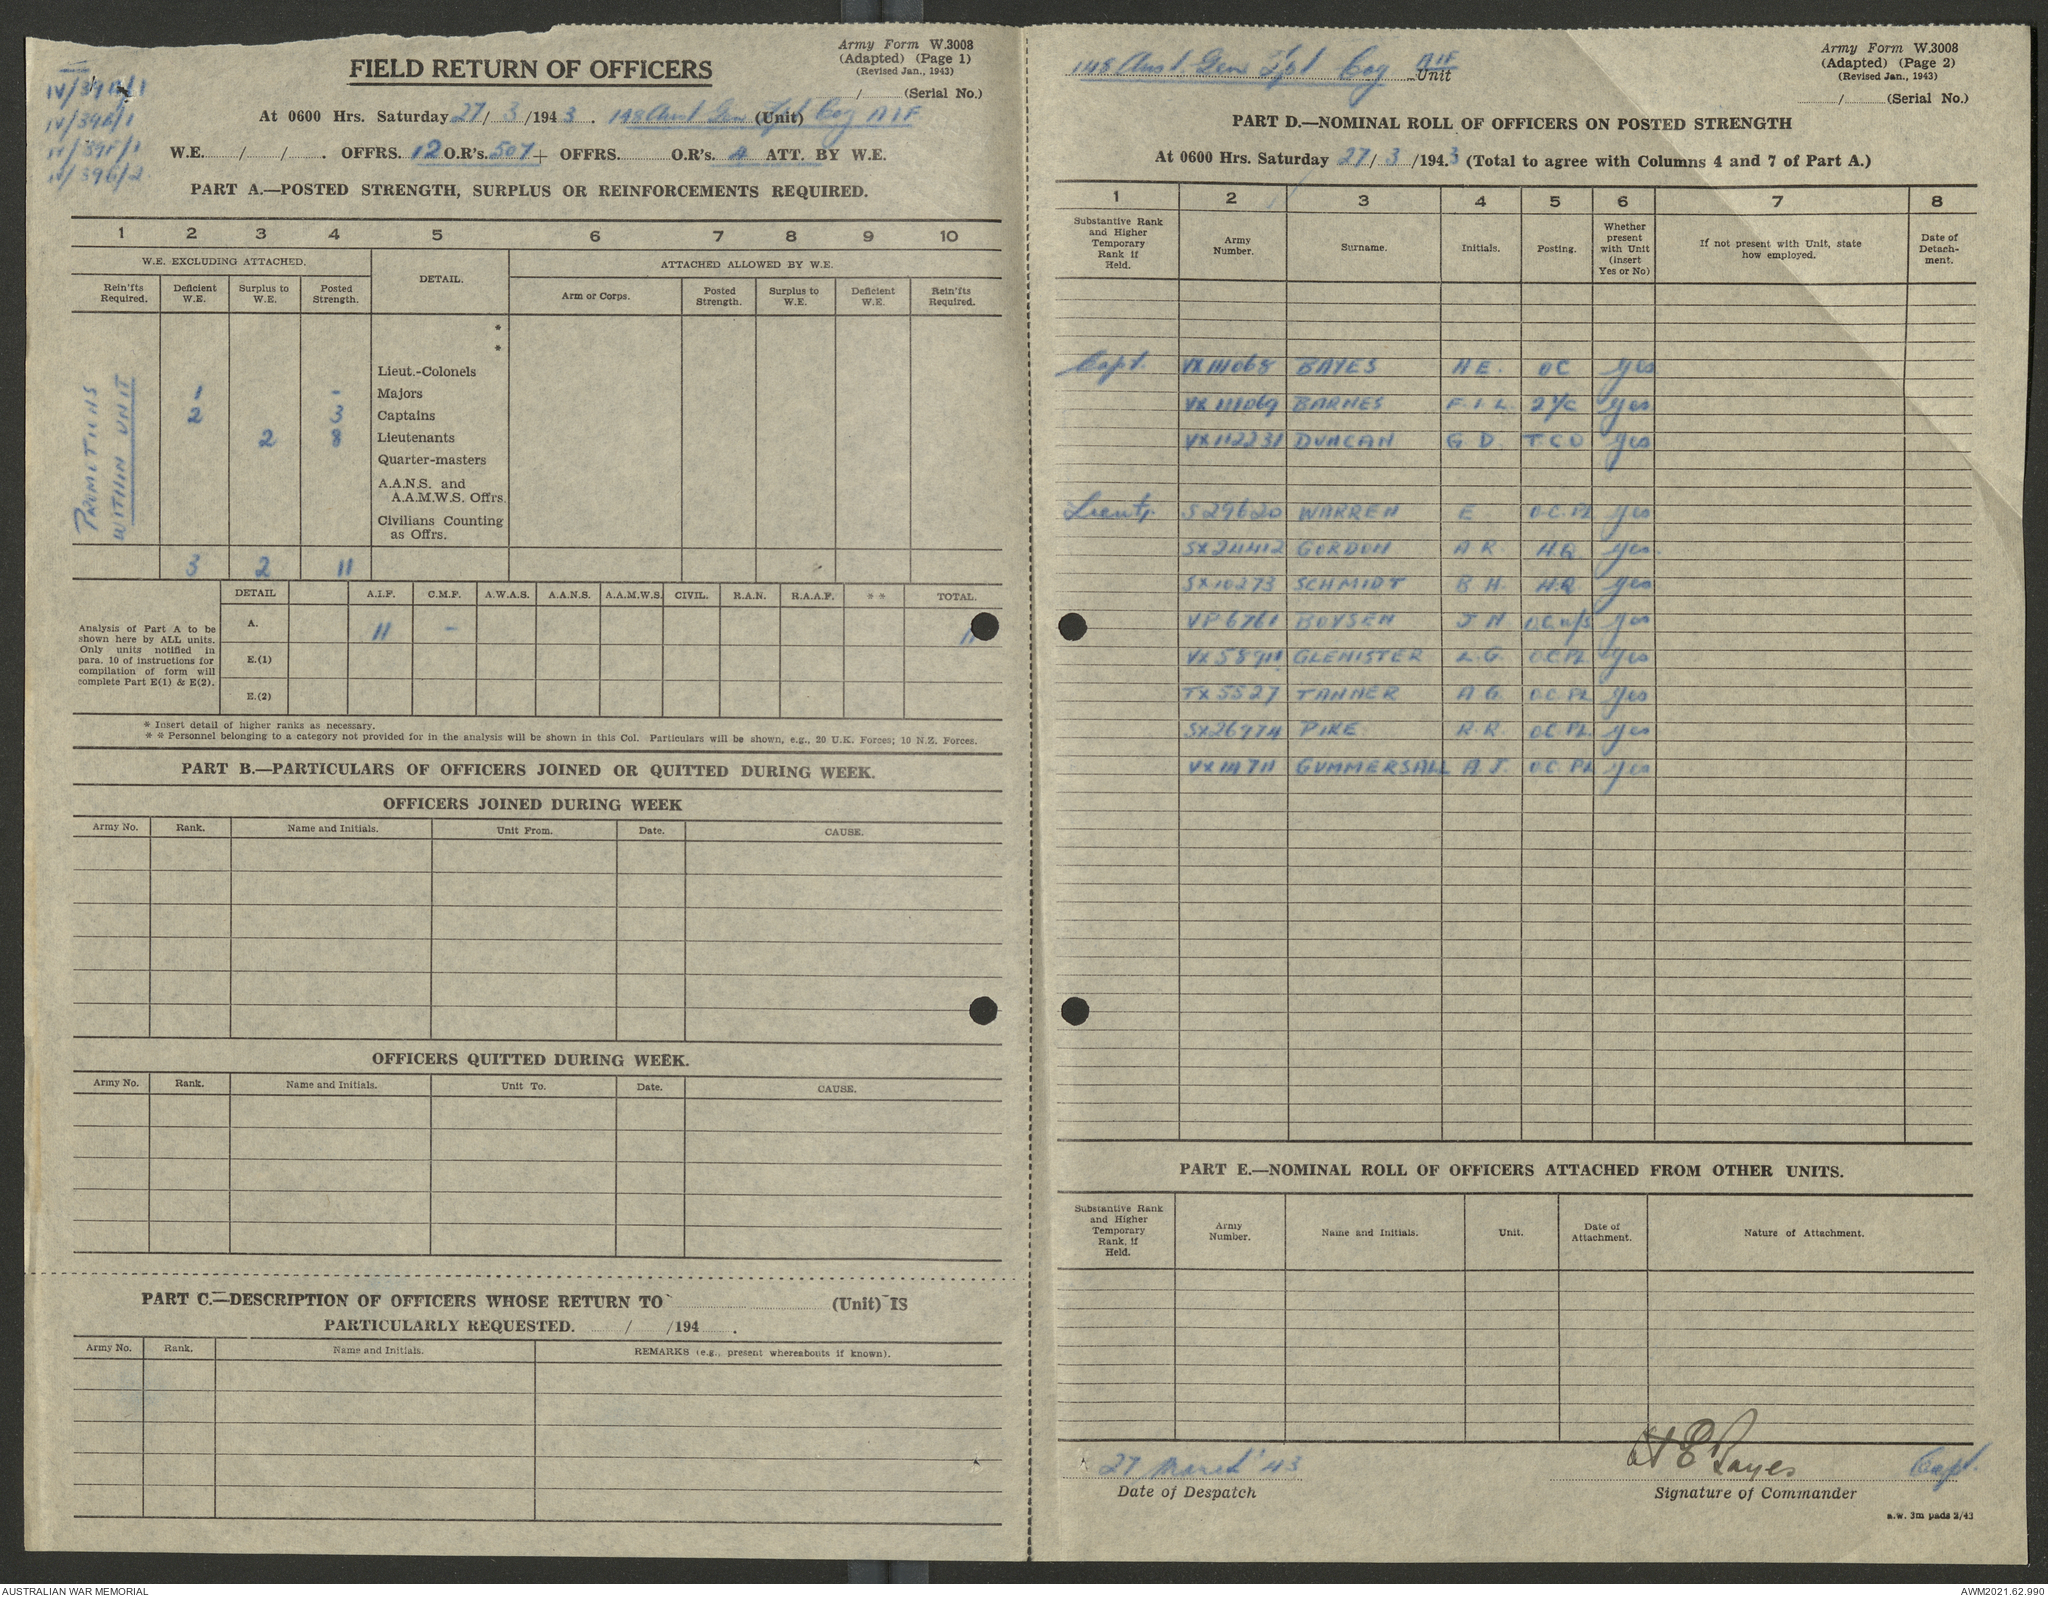 Army Form W.3008
(Adapted) (Page 1)
(Revised Jan., 1943)
/ (Serial No.)
FIELD RETURN OF OFFICERS
At 0600 Hrs. Saturday 27/3/1943. 148 Aust Gen (Unit) Tpt Coy AIF
W.E. / / . OFFRS. 12 O.R's. 507 + OFFRS. O.R's. 4 ATT. BY W.E.
PART A.—POSTED STRENGTH, SURPLUS OR REINFORCEMENTS REQUIRED.
1 2 3 4 5 6 7 8 9 10
W.E. EXCLUDING ATTACHED. DETAIL. ATTACHED ALLOWED BY W.E.
Rein'fts Required. Deficient W.E. Surplus to W.E. Posted Strength. Arm or Corps. Posted Strength. Surplus to W.E. Deficient W.E. Rein'fts Required.
*
*
PROMOTIONS WITHIN UNIT
Lieut.-Colonels
1 - Majors
2 3 Captains
2 8 Lieutenants
Quarter-masters
A.A.N.S. and
A.A.M.W.S. Offrs.
Civilians Counting
as Offrs.
3 2 11
DETAIL A.I.F. C.M.F. A.W.A.S. A.A.N.S. A.A.M.W.S. CIVIL. R.A.N. R.A.A.F. * * TOTAL.
Analysis of Part A to be
shown here by ALL units.
Only units notified in
para. 10 of instructions for
compilation of form will
complete Part E(1) & E(2).
A. 11 - 11
E.(1)
E.(2)
* Insert detail of higher ranks as necessary.
* * Personnel belonging to a category not provided for in the analysis will be shown in this Col. Particulars will be shown, e.g., 20 U.K. Forces; 10 N.Z. Forces.
PART B.—PARTICULARS OF OFFICERS JOINED OR QUITTED DURING WEEK.
OFFICERS JOINED DURING WEEK
Army No. Rank. Name and Initials. Unit From. Date. CAUSE.
OFFICERS QUITTED DURING WEEK.
Army No. Rank. Name and Initials. Unit To. Date. CAUSE.
PART C.—DESCRIPTION OF OFFICERS WHOSE RETURN TO (Unit) IS
PARTICULARLY REQUESTED. / /194 .
Army No. Rank. Name and Initials. REMARKS (e.g., present whereabouts if known).
148 Aust Gen Tpt Coy AIF Unit
Army Form W.3008
(Adapted) (Page 2)
(Revised Jan., 1943)
/ (Serial No.)
PART D.—NOMINAL ROLL OF OFFICERS ON POSTED STRENGTH
At 0600 Hrs. Saturday 27/3/1943 (Total to agree with Columns 4 and 7 of Part A.)
1 2 3 4 5 6 7 8
Substantive Rank and Higher Temporary Rank if Held. Army Number. Surname. Initials. Posting. Whether present with Unit (insert Yes or No) If not present with Unit, state how employed. Date of Detachment.
Capt. VX111068 BAYES H E. OC Yes
VX111069 BARNES F. I. L. 2 I/C Yes
VX112231 DUNCAN G D. T.C.O Yes
Lieuts. S29620 WARREN E O.C. PL Yes
SX24412 GORDON A R H.Q Yes
SX10273 SCHMIDT B H. H.Q Yes
VP6761 BOYSEN J N O.C W/S Yes
GLENISTER L. G. O.C. PL Yes
TX5527 TANNER A G O.C. PL Yes
SX26974 PIKE R. R. O.C. PL Yes
GUMMERSALL A. J. O.C PL Yes
PART E.—NOMINAL ROLL OF OFFICERS ATTACHED FROM OTHER UNITS.
Substantive Rank and Higher Temporary Rank, if Held. Army Number. Name and Initials. Unit. Date of Attachment. Nature of Attachment.
27 March '43 H E Bayes Capt.
Date of Despatch Signature of Commander
a.w. 3m pads 2/43
AUSTRALIAN WAR MEMORIAL AWM2021.62.990